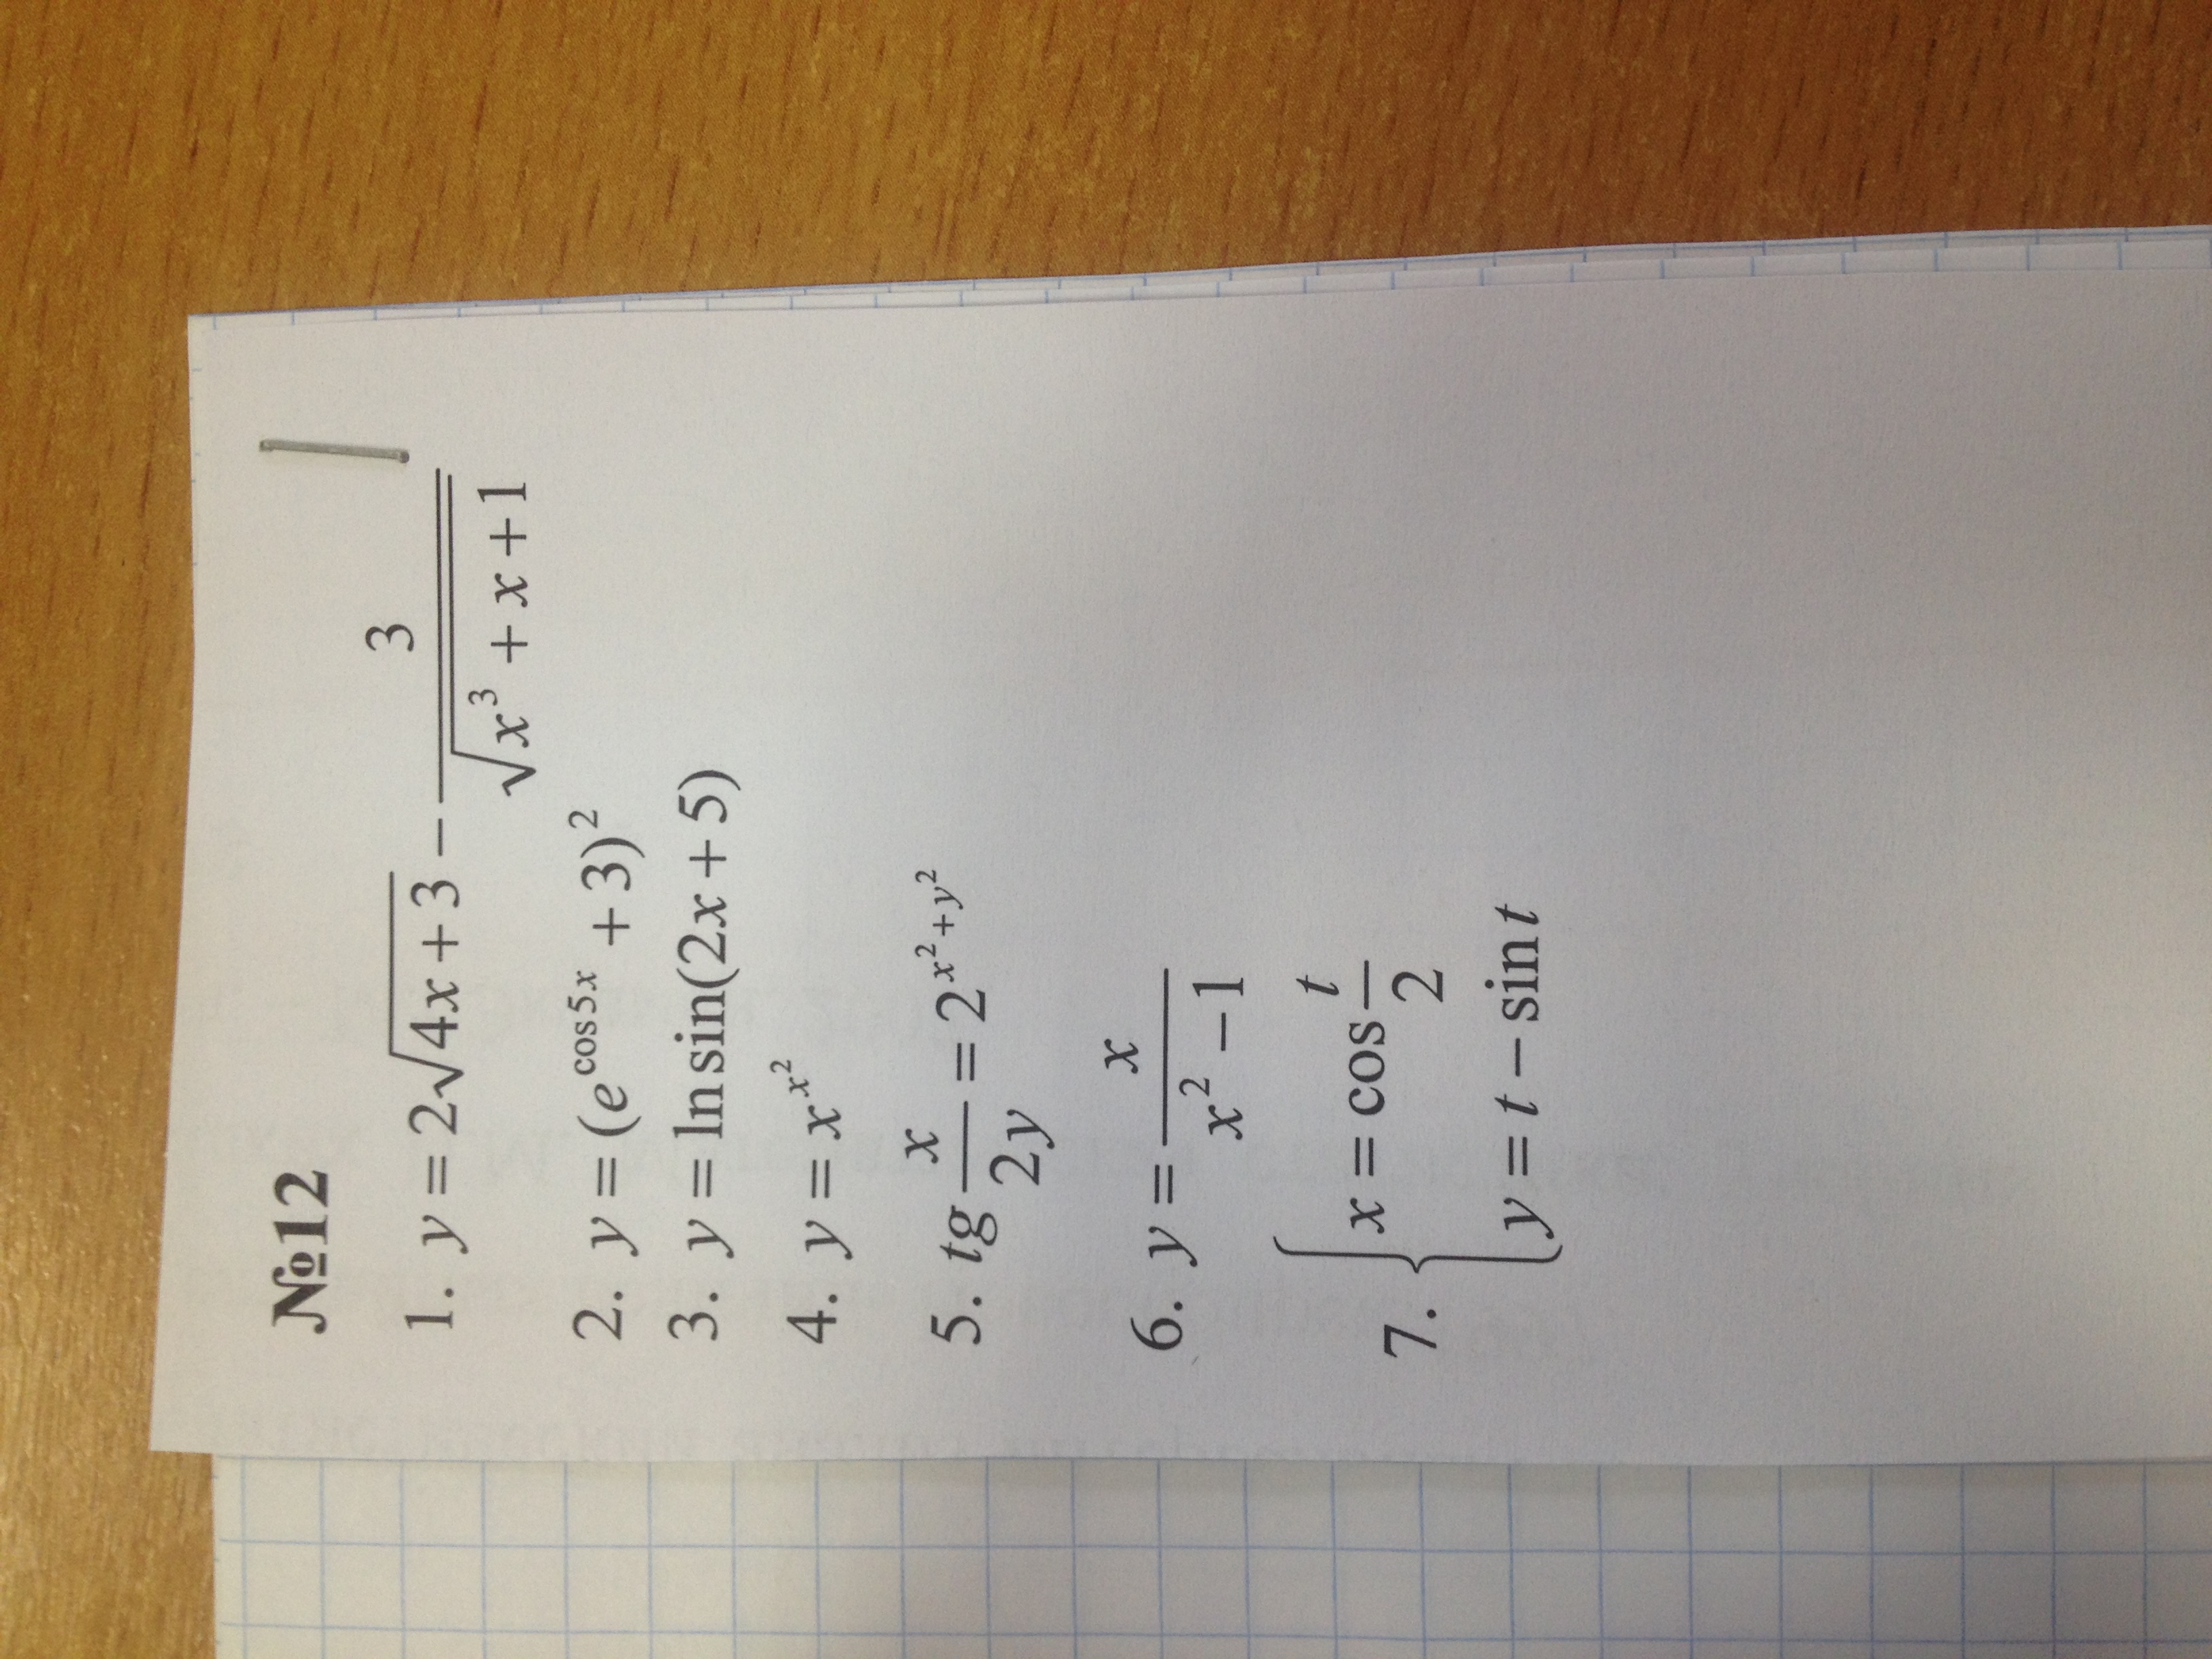 №12
1. y = 2√(4x + 3) − 3/√(x³ + x + 1)
2. y = (e^(cos 5x) + 3)²
3. y = ln sin(2x + 5)
4. y = x^(x²)
5. tg x/(2y) = 2^(x² + y²)
6. y = x/(x² − 1)
7. { x = cos t/2
y = t − sin t